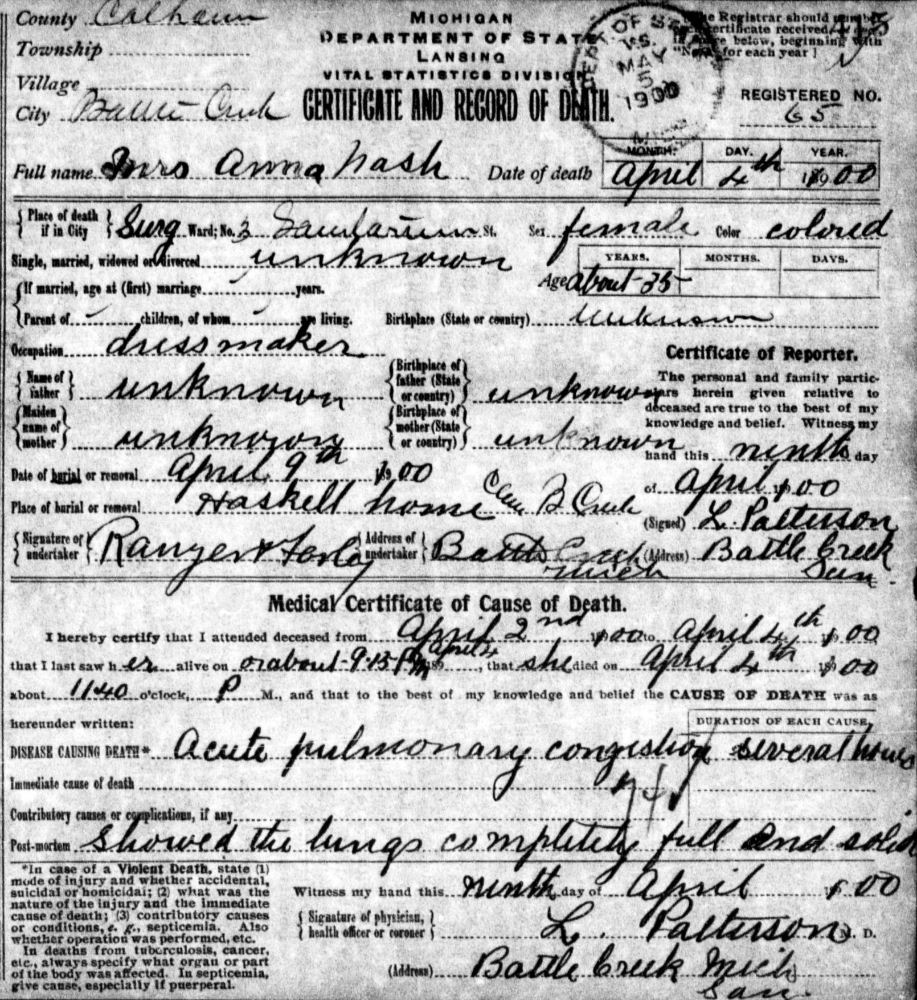 County Calhoun
Township
Village
City Battle Creek
MICHIGAN
DEPARTMENT OF STATE
LANSING
VITAL STATISTICS DIVISION
CERTIFICATE AND RECORD OF DEATH.
DEPT OF
MAY
5
1900
Registrar should number
certificate received
below, beginning with
for each year ]
REGISTERED NO.
65
Full name Mrs Anna Nash Date of death MONTH. April DAY. 4th YEAR. 1900
{ Place of death if in City } Surg Ward; No. 3 Sanitarium St. Sex female Color colored
Single, married, widowed or divorced unknown
Age YEARS. about 35 MONTHS. DAYS.
{ If married, age at (first) marriage - years.
{ Parent of - children, of whom - are living. Birthplace (State or country) unknown
Occupation dressmaker
{ Name of father } unknown { Birthplace of father (State or country) } unknown
{ Maiden name of mother } unknown { Birthplace of mother (State or country) } unknown
Date of burial or removal April 9th 1900
Place of burial or removal Haskell home Cem B Creek
{ Signature of undertaker } Ranger & Farley { Address of undertaker } Battle Creek Mich
Certificate of Reporter.
The personal and family partic-
ulars herein given relative to
deceased are true to the best of my
knowledge and belief. Witness my
hand this ninth day
of April 1900
(Signed) L. Patterson
(Address) Battle Creek
San.
Medical Certificate of Cause of Death.
I hereby certify that I attended deceased from April 2nd 1900 to April 4th 1900
that I last saw her alive on or about 9-15 PM April 4 189 , that she died on April 4th 1900
about 1140 o'clock, P M., and that to the best of my knowledge and belief the CAUSE OF DEATH was as
hereunder written:
DURATION OF EACH CAUSE
DISEASE CAUSING DEATH* Acute pulmonary congestion several hours
Immediate cause of death
Contributory causes or complications, if any
Post-mortem showed the lungs completely full and solid
*In case of a Violent Death, state (1)
mode of injury and whether accidental,
suicidal or homicidal; (2) what was the
nature of the injury and the immediate
cause of death; (3) contributory causes
or conditions, e. g., septicemia. Also
whether operation was performed, etc.
In deaths from tuberculosis, cancer,
etc., always specify what organ or part
of the body was affected. In septicemia,
give cause, especially if puerperal.
Witness my hand this ninth day of April 1900
{ Signature of physician, health officer or coroner } L. Patterson M. D.
(Address) Battle Creek Mich
San.